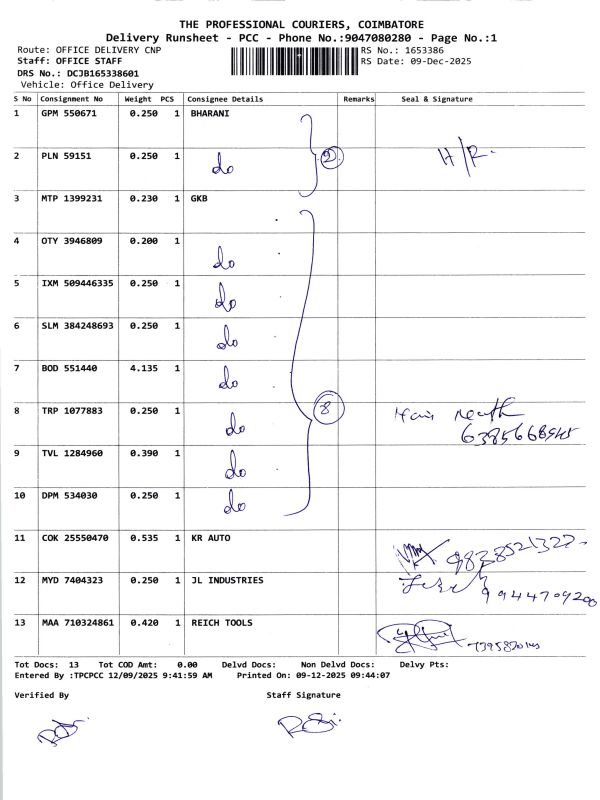 THE PROFESSIONAL COURIERS, COIMBATORE
Delivery Runsheet - PCC - Phone No.:9047080280 - Page No.:1
Route: OFFICE DELIVERY CNP
Staff: OFFICE STAFF
DRS No.: DCJB165338601
Vehicle: Office Delivery
RS No.: 1653386
RS Date: 09-Dec-2025
S No Consignment No Weight PCS Consignee Details Remarks Seal & Signature
1 GPM 550671 0.250 1 BHARANI
2 PLN 59151 0.250 1 do 2 H/R.
3 MTP 1399231 0.230 1 GKB
4 OTY 3946809 0.200 1 do
5 IXM 509446335 0.250 1 do
6 SLM 384248693 0.250 1 do
7 BOD 551440 4.135 1 do
8 TRP 1077883 0.250 1 do 8
9 TVL 1284960 0.390 1 do
10 DPM 534030 0.250 1 do
11 COK 25550470 0.535 1 KR AUTO
12 MYD 7404323 0.250 1 JL INDUSTRIES 9944709200
13 MAA 710324861 0.420 1 REICH TOOLS
Tot Docs: 13 Tot COD Amt: 0.00 Delvd Docs: Non Delvd Docs: Delvy Pts:
Entered By :TPCPCC 12/09/2025 9:41:59 AM Printed On: 09-12-2025 09:44:07
Verified By Staff Signature